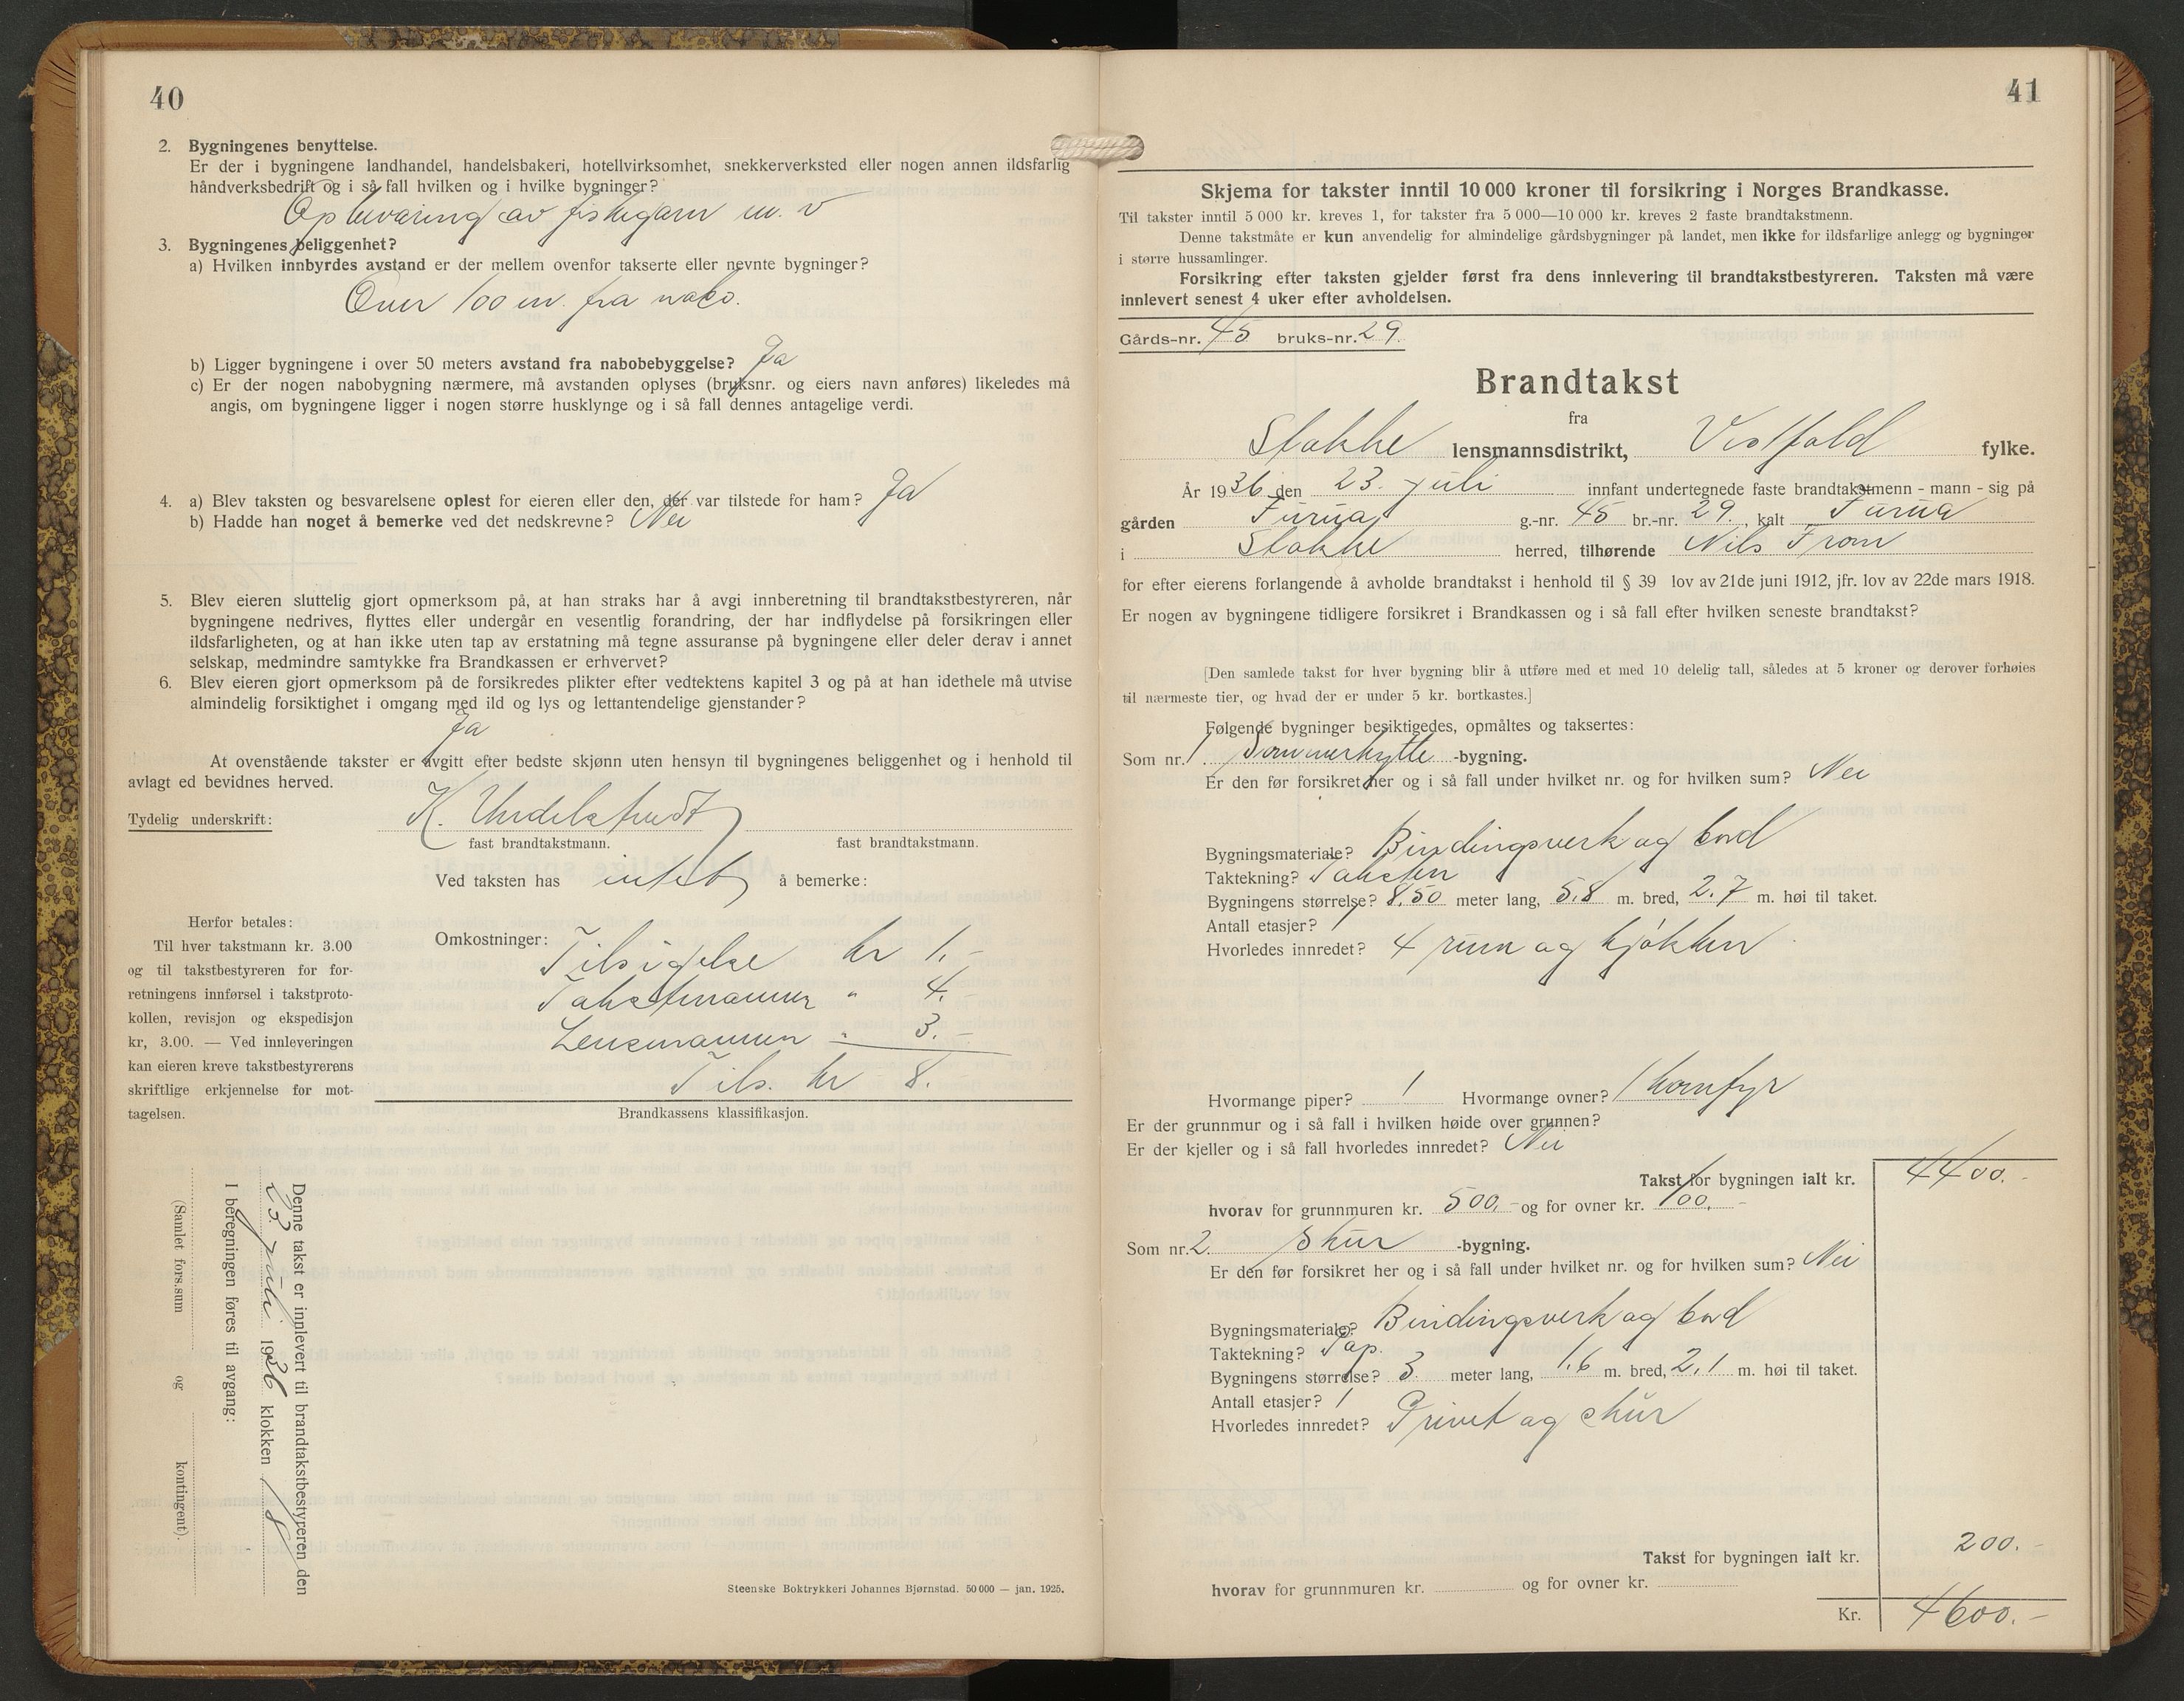 40
2. Bygningenes benyttelse.
Er der i bygningene landhandel, handelsbakeri, hotellvirksomhet, snekkerverksted eller nogen annen ildsfarlig
håndverksbedrift og i så fall hvilken og i hvilke bygninger?
Opbevaring av fiskegarn m. v
3. Bygningenes beliggenhet?
a) Hvilken innbyrdes avstand er der mellem ovenfor takserte eller nevnte bygninger?
Over 100 m. fra nabo.
b) Ligger bygningene i over 50 meters avstand fra nabobebyggelse? Ja
c) Er der nogen nabobygning nærmere, må avstanden oplyses (bruksnr. og eiers navn anføres) likeledes må
angis, om bygningene ligger i nogen større husklynge og i så fall dennes antagelige verdi.
4. a) Blev taksten og besvarelsene oplest for eieren eller den, der var tilstede for ham? Ja
b) Hadde han noget å bemerke ved det nedskrevne? Nei
5. Blev eieren sluttelig gjort opmerksom på, at han straks har å avgi innberetning til brandtakstbestyreren, når
bygningene nedrives, flyttes eller undergår en vesentlig forandring, der har indflydelse på forsikringen eller
ildsfarligheten, og at han ikke uten tap av erstatning må tegne assuranse på bygningene eller deler derav i annet
selskap, medmindre samtykke fra Brandkassen er erhvervet?
6. Blev eieren gjort opmerksom på de forsikredes plikter efter vedtektens kapitel 3 og på at han idethele må utvise
almindelig forsiktighet i omgang med ild og lys og lettantendelige gjenstander?
Ja
At ovenstående takster er avgitt efter bedste skjønn uten hensyn til bygningenes beliggenhet og i henhold til
avlagt ed bevidnes herved.
Tydelig underskrift: K.
fast brandtakstmann. fast brandtakstmann.
Ved taksten has intet å bemerke:
Herfor betales:
Til hver takstmann kr. 3.00
og til takstbestyreren for for-
retningens innførsel i takstproto-
kollen, revisjon og ekspedisjon
kr, 3.00. — Ved innleveringen
kan eieren kreve takstbestyrerens
skriftlige erkjennelse for mot-
tagelsen.
Omkostninger: Tilsigelse kr 1.-
Takstmannen " 4.
Lensmannen " 3.-
Tils. kr 8.
Brandkassens klassifikasjon.
Denne takst er innlevert til brandtakstbestyreren den
23. juli 1936 klokken 18
I beregningen føres til avgang:
(Samlet fors.sum og kontingent).
Steenske Boktrykkeri Johannes Bjørnstad. 50 000 — jan. 1925.
41
Skjema for takster inntil 10 000 kroner til forsikring i Norges Brandkasse.
Til takster inntil 5 000 kr. kreves 1, for takster fra 5 000—10 000 kr. kreves 2 faste brandtakstmenn.
Denne takstmåte er kun anvendelig for almindelige gårdsbygninger på landet, men ikke for ildsfarlige anlegg og bygninger
i større hussamlinger.
Forsikring efter taksten gjelder først fra dens innlevering til brandtakstbestyreren. Taksten må være
innlevert senest 4 uker efter avholdelsen.
Gårds-nr. 45 bruks-nr. 29.
Brandtakst
fra
Stokke lensmannsdistrikt, Vestfold fylke.
År 1936 den 23. juli innfant undertegnede faste brandtakstmenn - mann - sig på
gården Furua g.-nr. 45 br.-nr. 29., kalt Furua
i Stokke herred, tilhørende Nils From
for efter eierens forlangende å avholde brandtakst i henhold til § 39 lov av 21de juni 1912, jfr. lov av 22de mars 1918.
Er nogen av bygningene tidligere forsikret i Brandkassen og i så fall efter hvilken seneste brandtakst?
[Den samlede takst for hver bygning blir å utføre med et med 10 delelig tall, således at 5 kroner og derover forhøies
til nærmeste tier, og hvad der er under 5 kr. bortkastes.]
Følgende bygninger besiktigedes, opmåltes og taksertes:
Som nr. 1. Sommerhytte -bygning.
Er den før forsikret her og i så fall under hvilket nr. og for hvilken sum? Nei
Bygningsmateriale? Bindingsverk og bord
Taktekning? Taksten
Bygningens størrelse? 8.50 meter lang, 5.8 m. bred, 2.7 m. høi til taket.
Antall etasjer? 1
Hvorledes innredet? 4 rum og kjøkken
Hvormange piper? 1 Hvormange ovner? 1 komfyr
Er der grunnmur og i så fall i hvilken høide over grunnen?
Er der kjeller og i så fall hvorledes innredet? Nei
Takst for bygningen ialt kr. 4400.-
hvorav for grunnmuren kr. 500.- og for ovner kr. 100.-
Som nr. 2. Skur -bygning.
Er den før forsikret her og i så fall under hvilket nr. og for hvilken sum? Nei
Bygningsmateriale? Bindingsverk og bord
Taktekning? Pap.
Bygningens størrelse? 3 meter lang, 1.6 m. bred, 2.1 m. høi til taket.
Antall etasjer? 1
Hvorledes innredet? Privet og skur
Takst for bygningen ialt kr. 200.-
hvorav for grunnmuren kr. og for ovner kr.
Kr. 4600.-